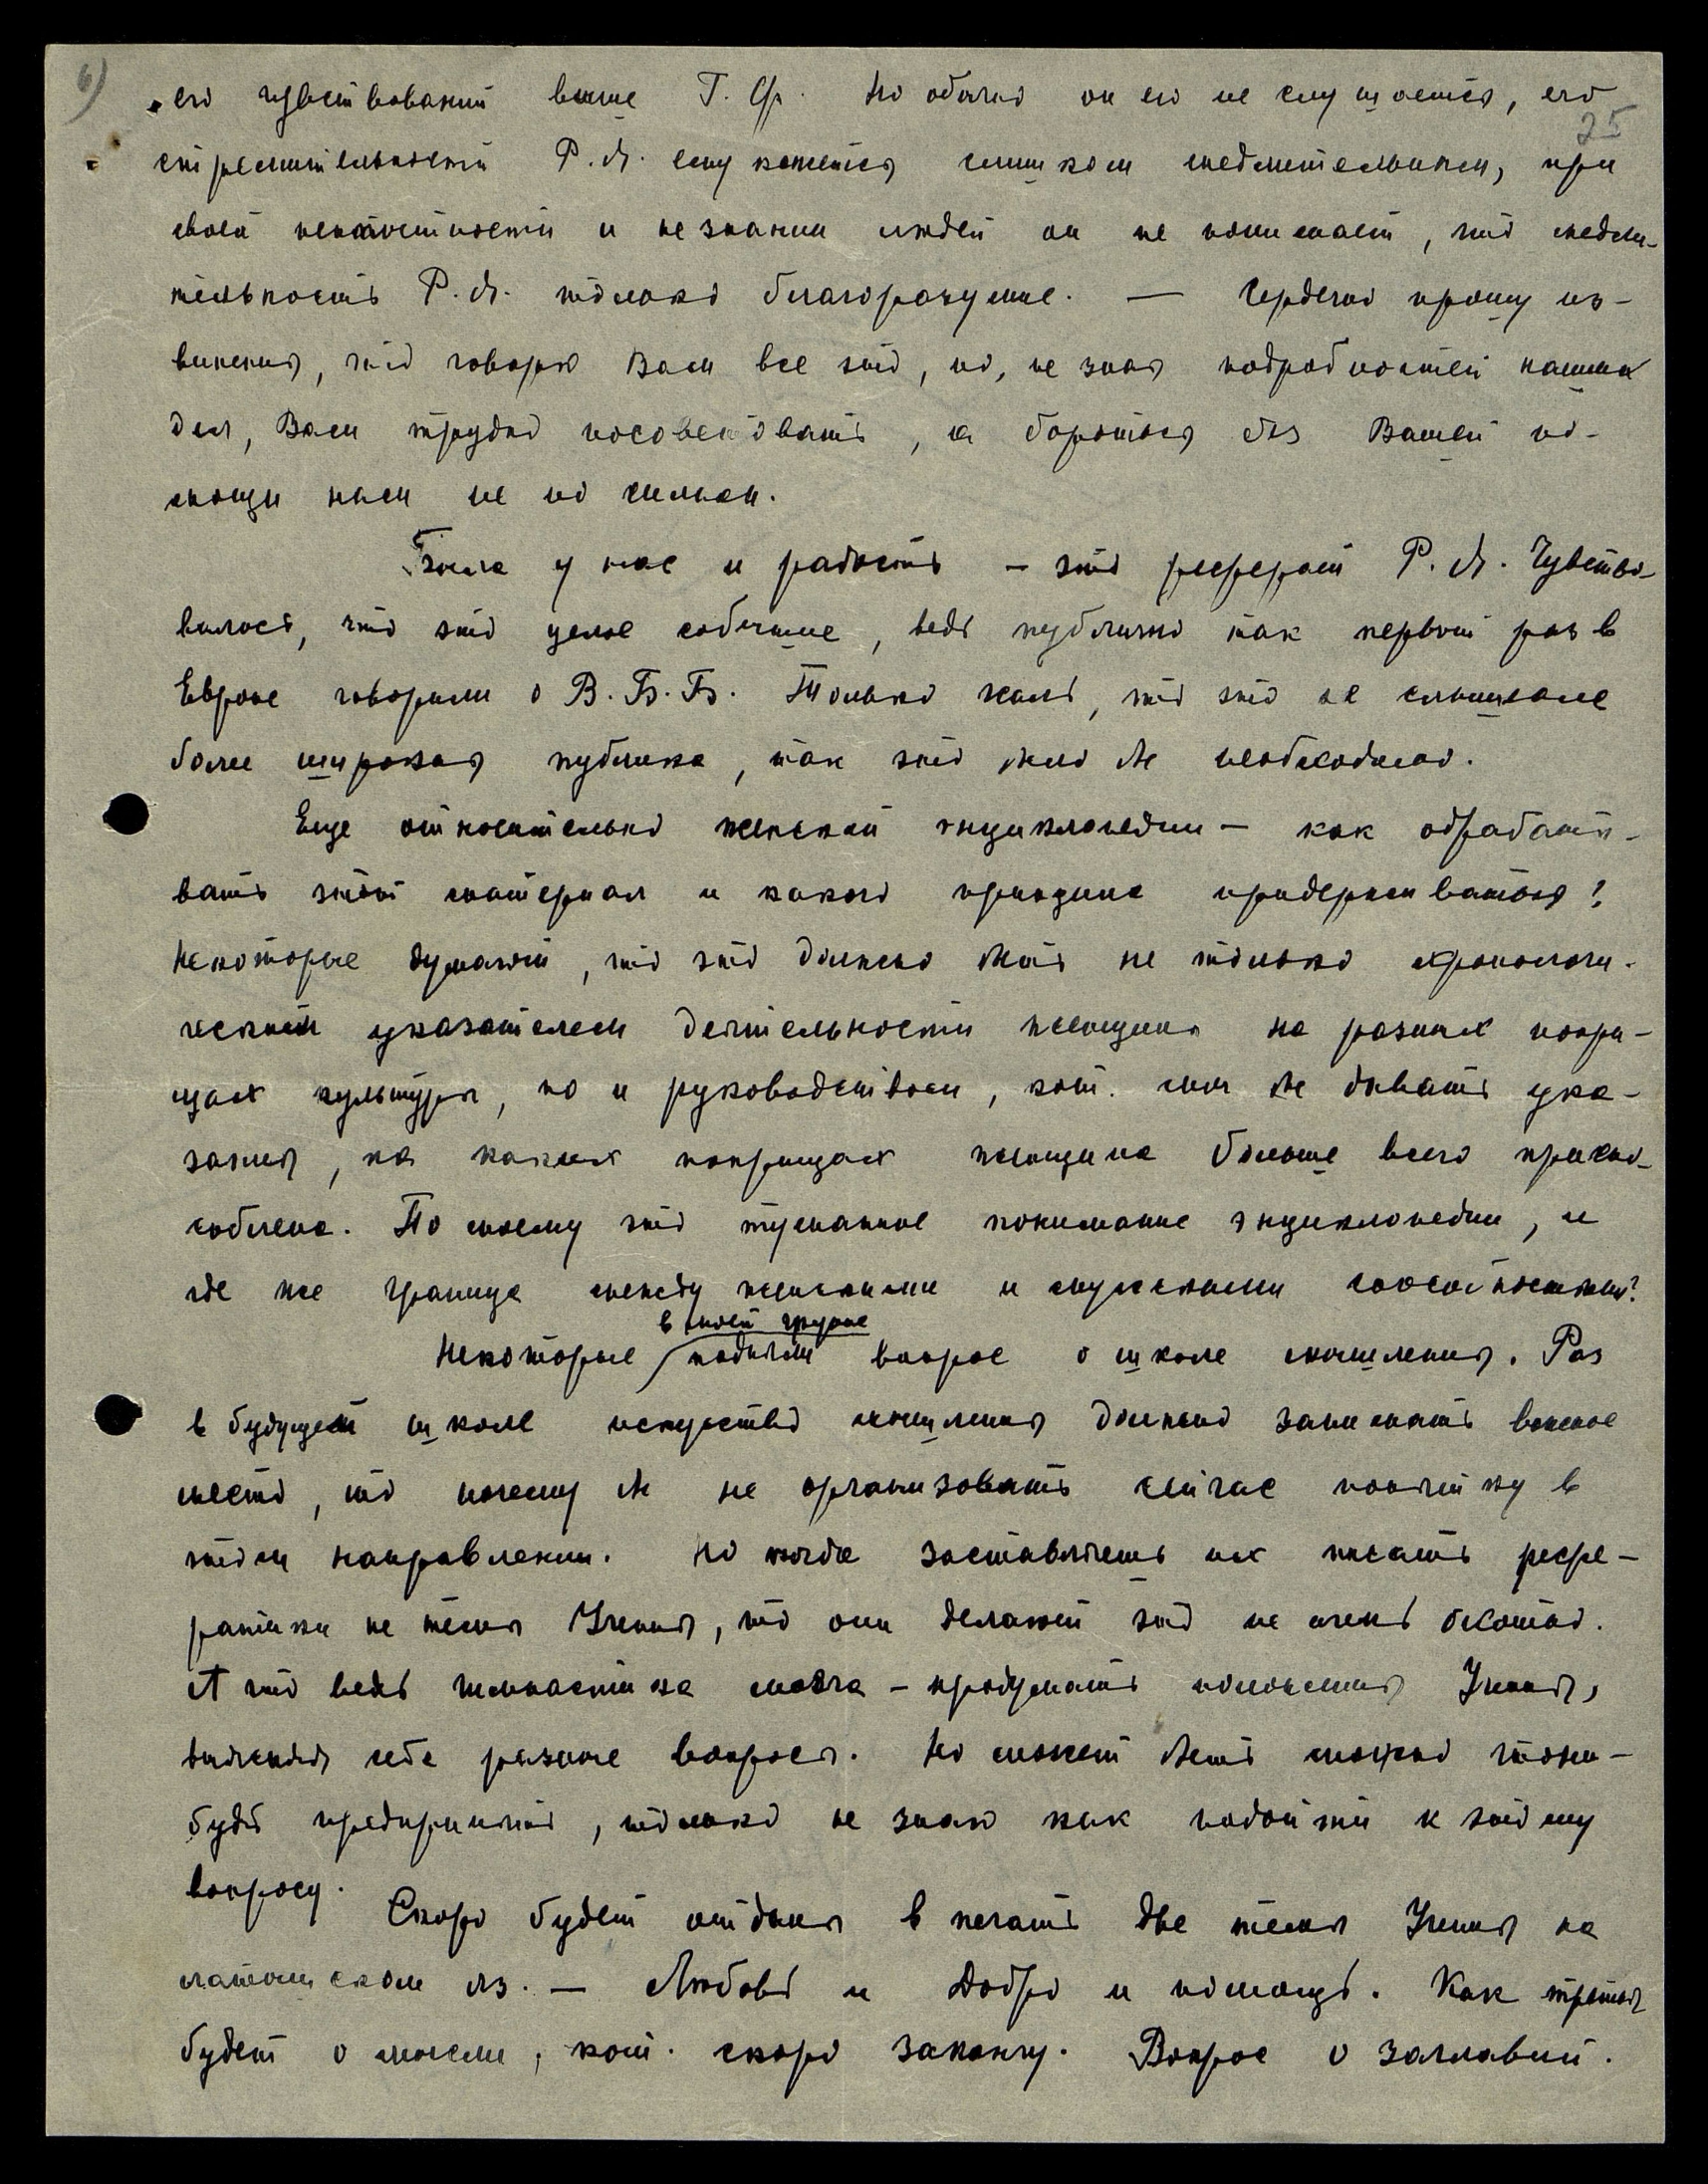 6)
его чувствований выше Г. Ф. Но обычно он его не слушается, его
25
стремительности Р. Я. ему кажется слишком медлительным, при
своей неопытности и незнании людей он не понимает, что медли-
тельность Р. Я. только благоразумие. — Сердечно прошу из-
винения, что говорю Вам все это, но, не зная подробностей наших
дел, Вам трудно посоветовать, а бороться без Вашей по-
мощи нам не по силам.
Была у нас и радость – это реферат Р. Я. Чувство-
валось, что это целое событие, ведь публично так первый раз в
Европе говорили о В. Б. Б. Только жаль, что это не слышала
более широкая публика, так это было бы необходимо.
Еще относительно женской энциклопедии – как обрабаты-
вать этот материал и какого принципа придерживаться?
Некоторые думают, что это должно быть не только хронологи-
ческим указателем деятельности женщины на разных попри-
щах культуры, но и руководством, кот. мог бы давать ука-
зания, на каких поприщах женщина больше всего приспо-
соблена. По моему это туманное понимание энциклопедии, и
где же граница между женскими и мужскими способностями?
в моей группе
Некоторые подняли вопрос о школе мышления. Раз
в будущей школе искусство мышления должно занимать важное
место, то почему бы не организовать сейчас попытку в
этом направлении. Но когда заставляешь их писать рефе-
ратики на темы Учения, то они делают это не очень охотно.
А это ведь гимнастика мозга – продумать положения Учения,
выясняя себе разные вопросы. Но может быть можно что-ни-
будь предпринять, только не знаю как подойти к этому
вопросу.
Скоро будет отданы в печать две темы Учения на
латышском яз. — Любовь и Добро и помощь. Как третья
будет о мысли, кот. скоро закончу. Вопрос о заглавии.